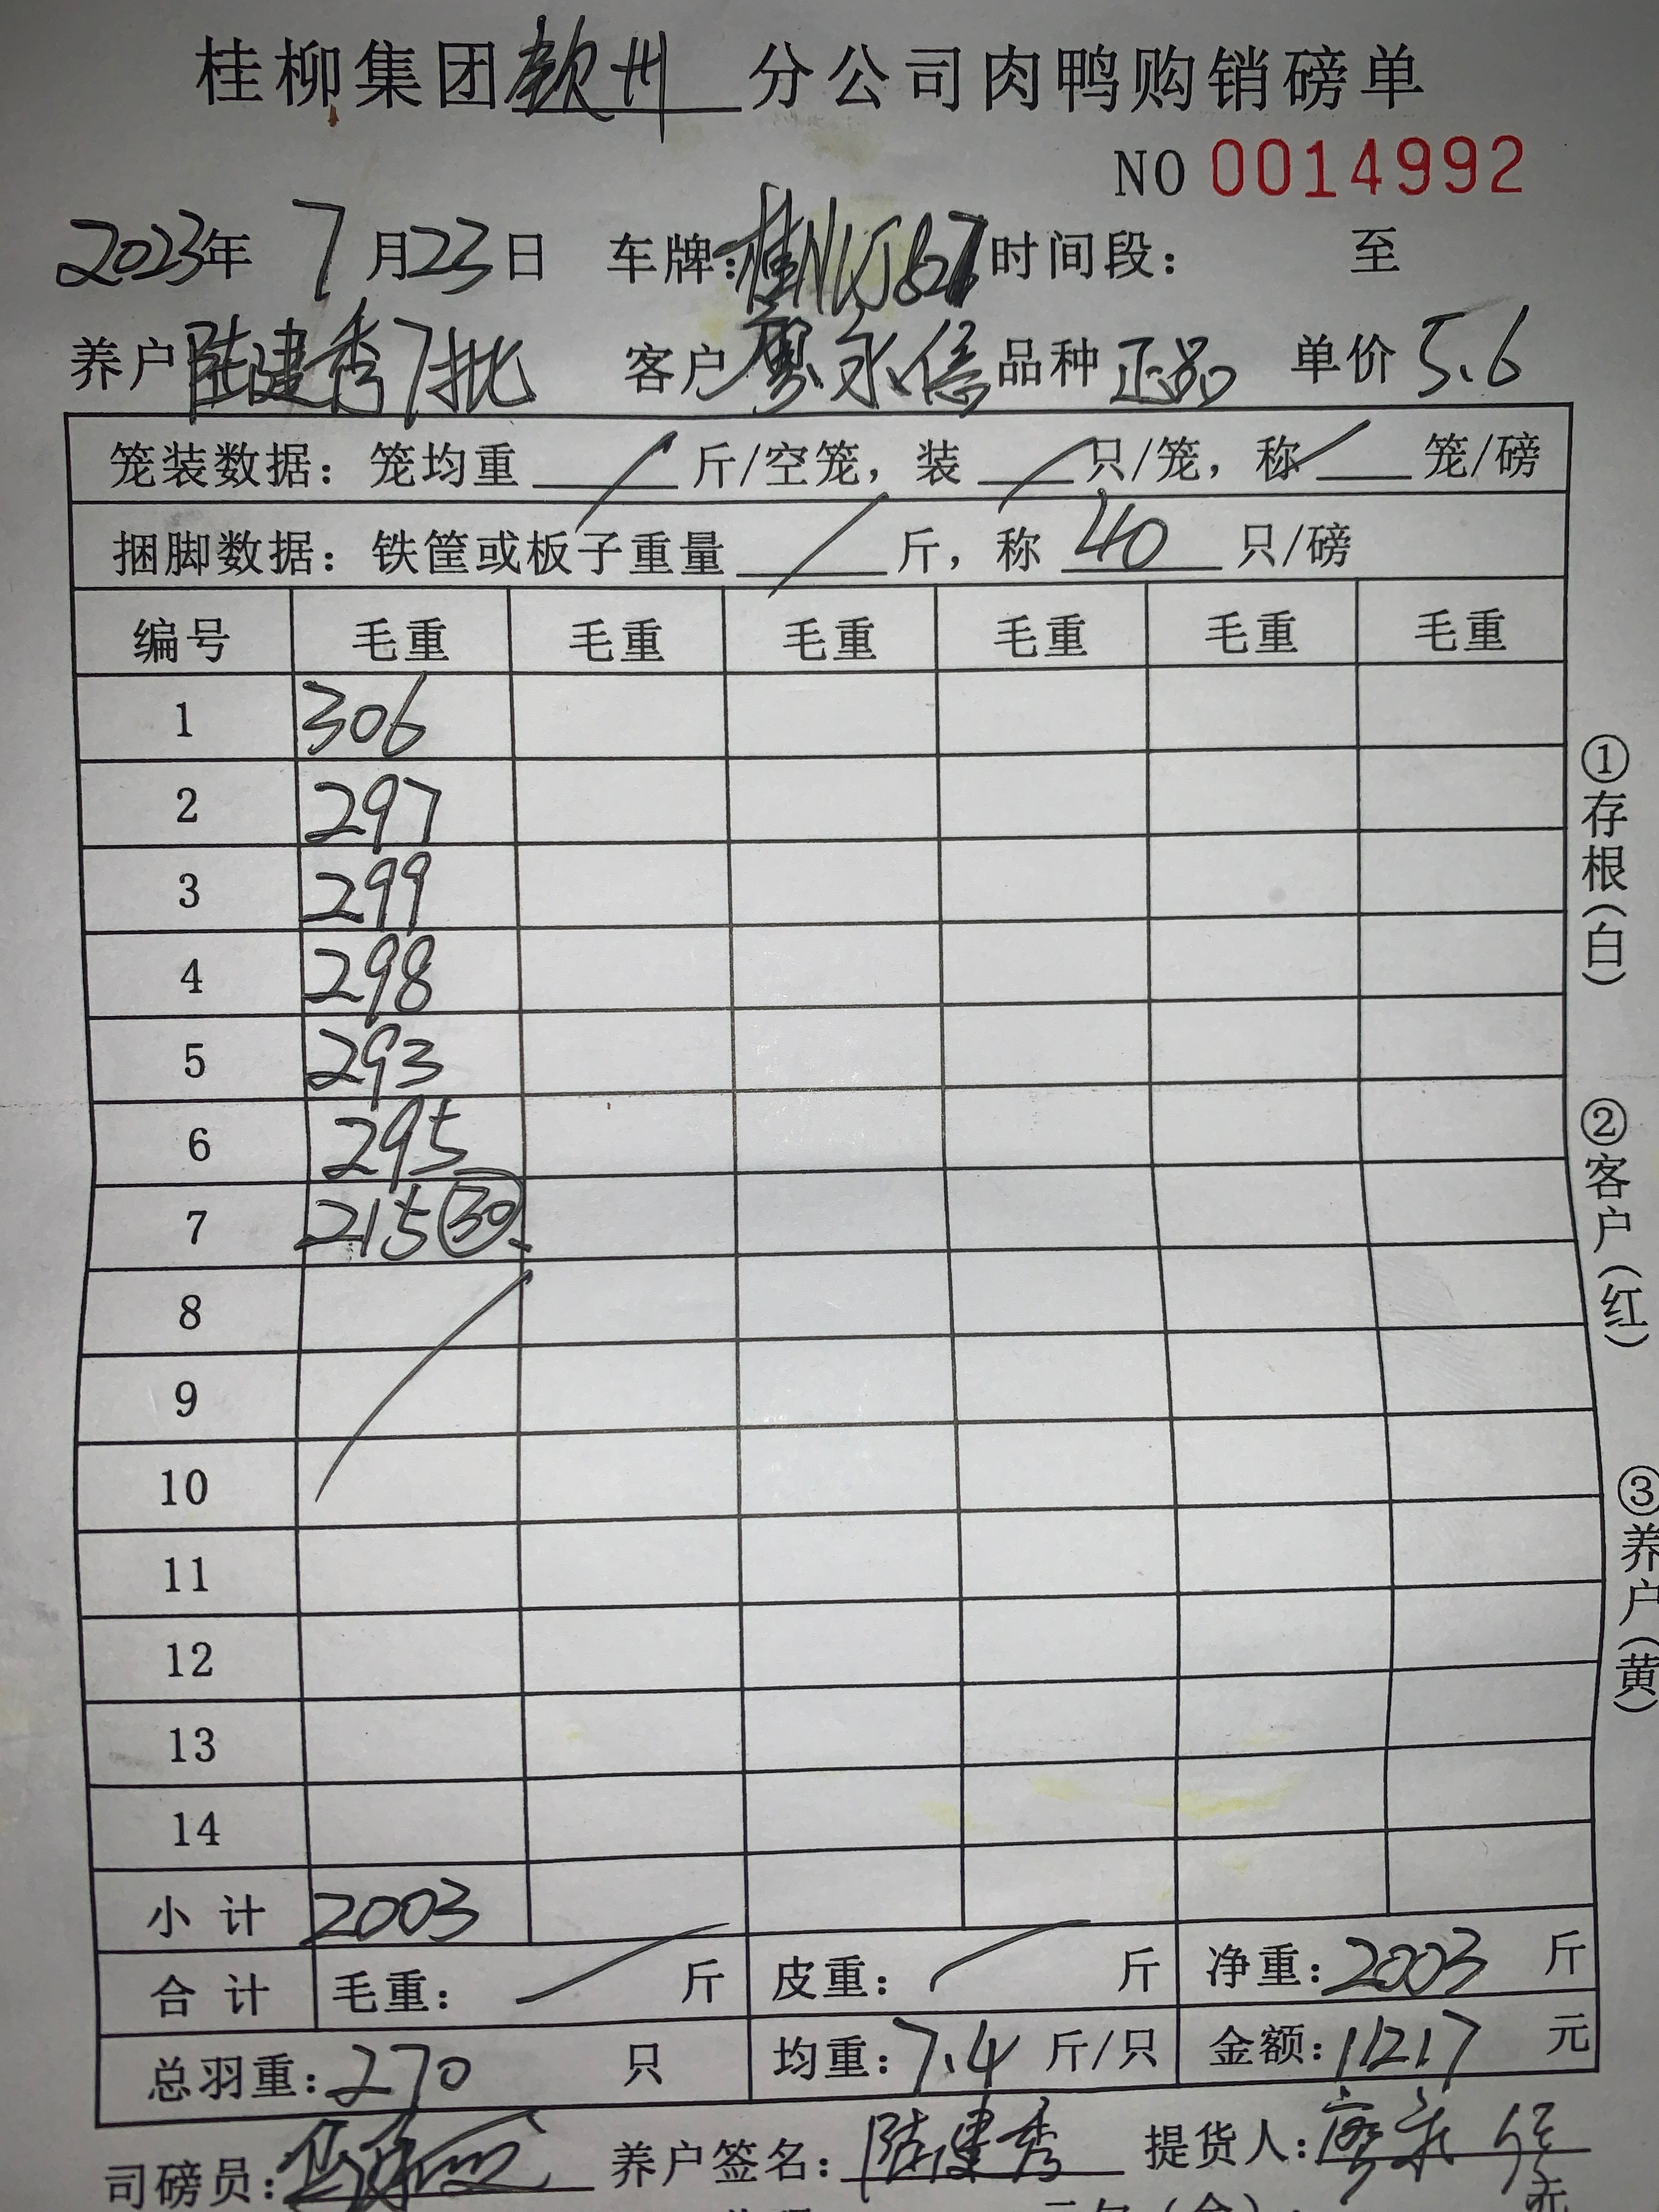 桂柳集团钦州分公司肉鸭购销磅单
NO 0014992
2023年 7月23日 车牌: 时间段: 至
养户 陆建秀7批 客户 廖永信 品种 正品 单价 5.6
笼装数据: 笼均重 斤/空笼, 装 只/笼, 称 笼/磅
捆脚数据: 铁筐或板子重量 斤, 称 40 只/磅
编号 毛重 毛重 毛重 毛重 毛重 毛重
1 306
2 297
3 299
4 298
5 293
6 295
7 215 30
8
9
10
11
12
13
14
小计 2003
合计 毛重: 斤 皮重: 斤 净重: 2003 斤
总羽重: 270 只 均重: 7.4 斤/只 金额: 11217 元
司磅员: 养户签名: 陆建秀 提货人: 廖永信
①存根(白)
②客户(红)
③养户(黄)